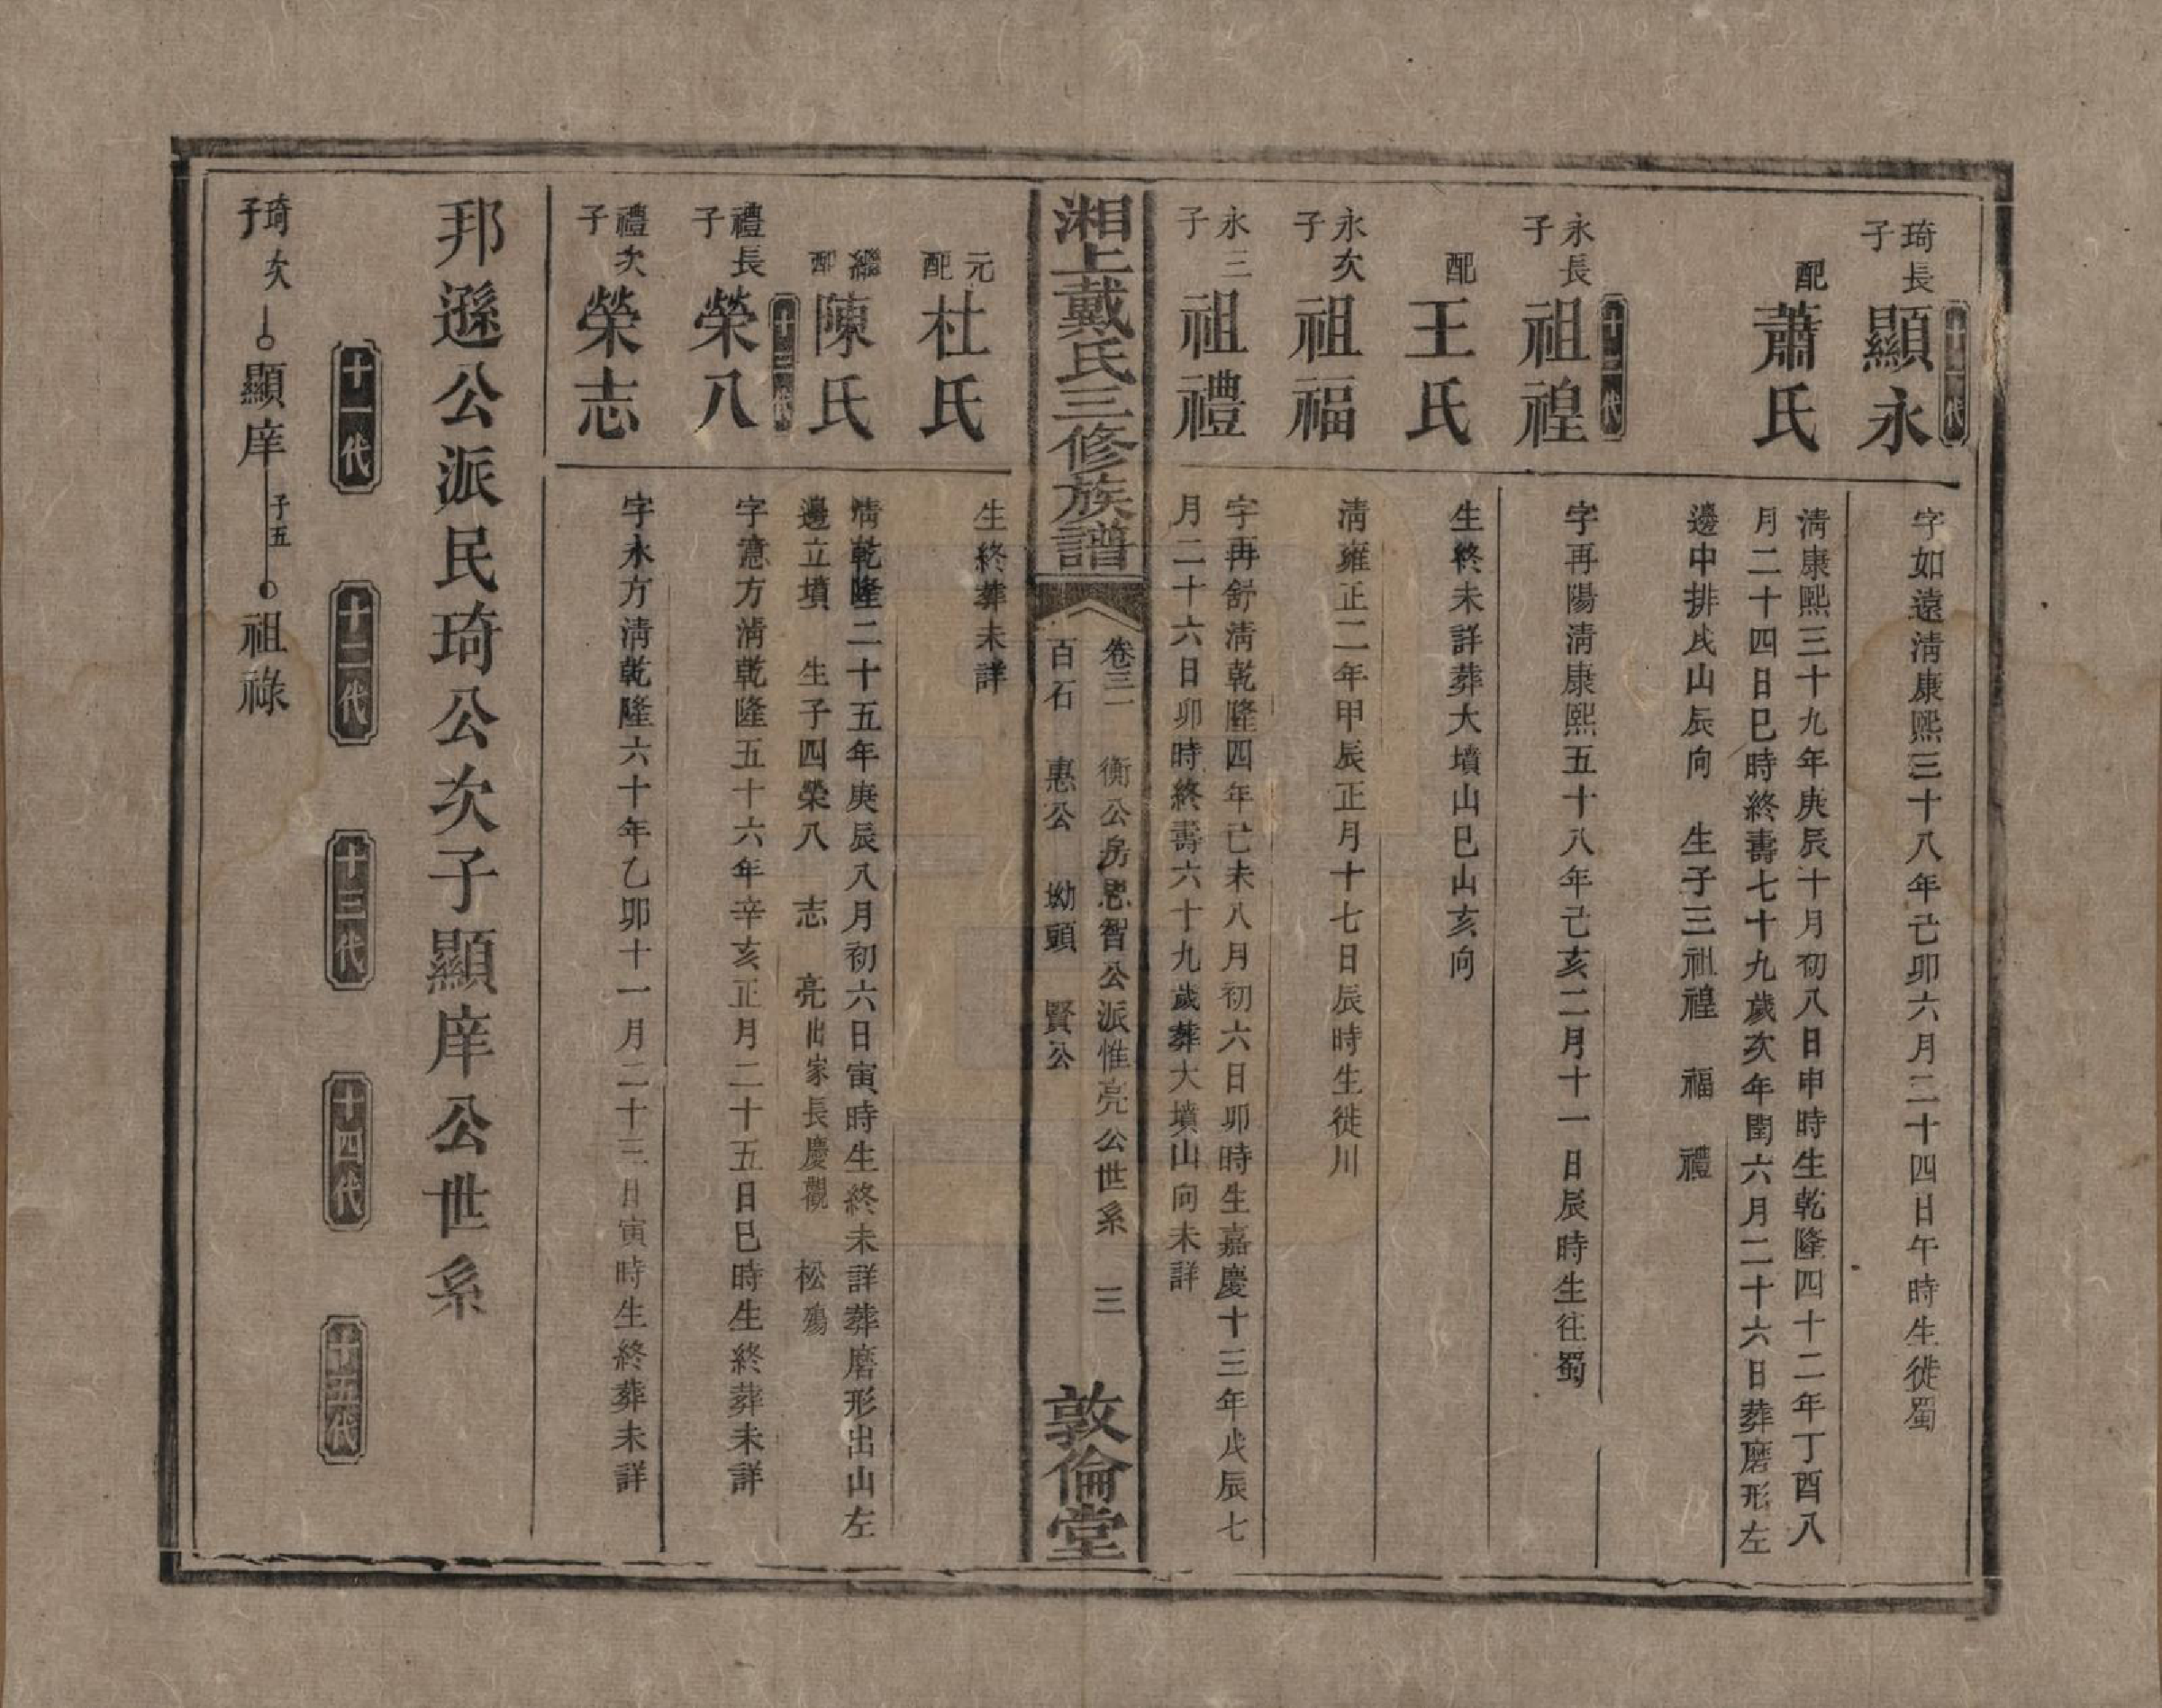 十一代
琦長子 顯永
字如遠淸康熙三十八年己卯六月二十四日午時生徙蜀
配 蕭氏
淸康熙三十九年庚辰十月初八日申時生乾隆四十二年丁酉八
月二十四日巳時終壽七十九歲次年閏六月二十六日葬磨形左
邊中排戌山辰向 生子三祖禋 福 禮
十二代
永長子 祖禋
字再陽淸康熙五十八年己亥二月十一日辰時生往蜀
配 王氏
生終未詳葬大墳山巳山亥向
永次子 祖福
淸雍正二年甲辰正月十七日辰時生徙川
永三子 祖禮
字再舒淸乾隆四年己未八月初六日卯時生嘉慶十三年戊辰七
月二十六日卯時終壽六十九歲葬大墳山向未詳
湘上戴氏三修族譜
卷三 衡公房思智公派惟亮公世系 三
百石 惠公 坳頭 賢公
敦倫堂
元配 杜氏
生終葬未詳
繼配 陳氏
淸乾隆二十五年庚辰八月初六日寅時生終未詳葬磨形出山左
邊立墳 生子四榮八 志 亮出家長慶觀 松殤
十三代
禮長子 榮八
字憲方淸乾隆五十六年辛亥正月二十五日巳時生終葬未詳
禮次子 榮志
字永方淸乾隆六十年乙卯十一月二十三日寅時生終葬未詳
邦遜公派民琦公次子顯庠公世系
十一代 十二代 十三代 十四代 十五代
琦次子 顯庠 子五 祖祿